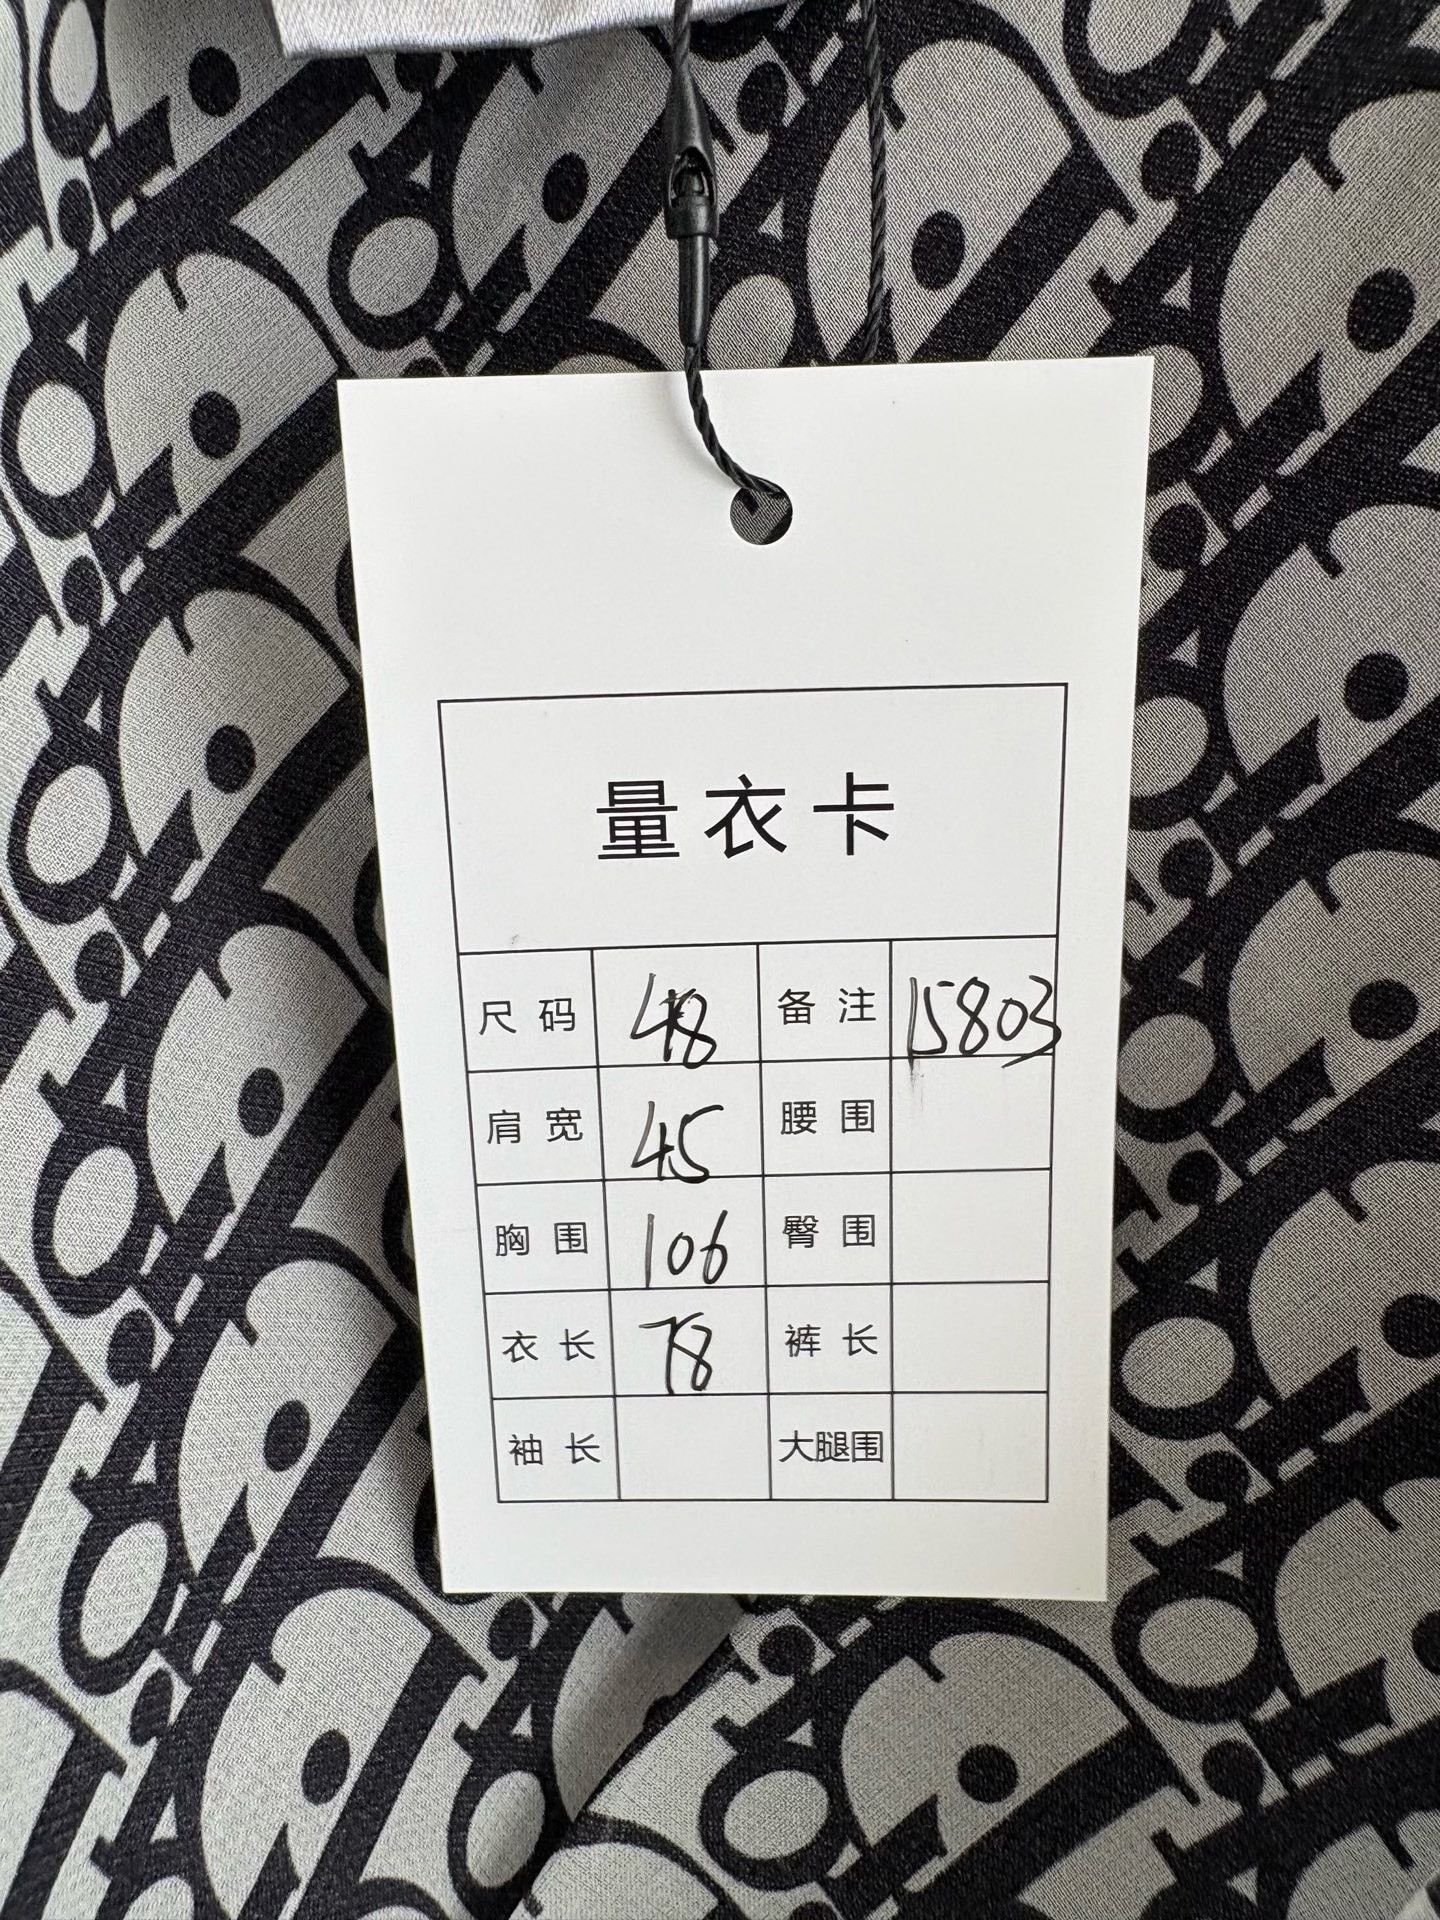 量衣卡
尺码 48 备注 15803
肩宽 45 腰围
胸围 106 臀围
衣长 78 裤长
袖长 大腿围